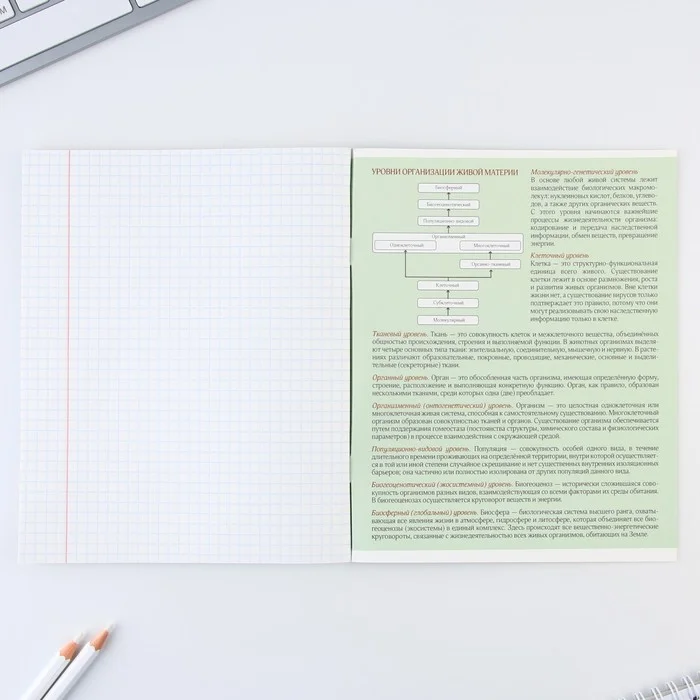 УРОВНИ ОРГАНИЗАЦИИ ЖИВОЙ МАТЕРИИ
Биосферный
Биогеоценотический
Популяционно-видовой
Организменный
Одноклеточный
Многоклеточный
Органно-тканевый
Клеточный
Субклеточный
Молекулярный
Молекулярно-генетический уровень
В основе любой живой системы лежит
взаимодействие биологических макромо-
лекул: нуклеиновых кислот, белков, углево-
дов, а также других органических веществ.
С этого уровня начинаются важнейшие
процессы жизнедеятельности организма:
кодирование и передача наследственной
информации, обмен веществ, превращение
энергии.
Клеточный уровень
Клетка — это структурно-функциональная
единица всего живого. Существование
клетки лежит в основе размножения, роста
и развития живых организмов. Вне клетки
жизни нет, а существование вирусов только
подтверждает это правило, потому что они
могут реализовывать свою наследственную
информацию только в клетке.
Тканевый уровень. Ткань — это совокупность клеток и межклеточного вещества, объединённых
общностью происхождения, строения и выполняемой функции. В животных организмах выделя-
ют четыре основных типа ткани: эпителиальную, соединительную, мышечную и нервную. В расте-
ниях различают образовательные, покровные, проводящие, механические, основные и выдели-
тельные (секреторные) ткани.
Органный уровень. Орган — это обособленная часть организма, имеющая определённую форму,
строение, расположение и выполняющая конкретную функцию. Орган, как правило, образован
несколькими тканями, среди которых одна (две) преобладает.
Организменный (онтогенетический) уровень. Организм — это целостная одноклеточная или
многоклеточная живая система, способная к самостоятельному существованию. Многоклеточный
организм образован совокупностью тканей и органов. Существование организма обеспечивается
путем поддержания гомеостаза (постоянства структуры, химического состава и физиологических
параметров) в процессе взаимодействия с окружающей средой.
Популяционно-видовой уровень. Популяция — совокупность особей одного вида, в течение
длительного времени проживающих на определённой территории, внутри которой осуществляет-
ся в той или иной степени случайное скрещивание и нет существенных внутренних изоляционных
барьеров; она частично или полностью изолирована от других популяций данного вида.
Биогеоценотический (экосистемный) уровень. Биогеоценоз — исторически сложившаяся сово-
купность организмов разных видов, взаимодействующая со всеми факторами их среды обитания.
В биогеоценозах осуществляется круговорот веществ и энергии.
Биосферный (глобальный) уровень. Биосфера — биологическая система высшего ранга, охваты-
вающая все явления жизни в атмосфере, гидросфере и литосфере, которая объединяет все био-
геоценозы (экосистемы) в единый комплекс. Здесь происходят все вещественно-энергетические
круговороты, связанные с жизнедеятельностью всех живых организмов, обитающих на Земле.